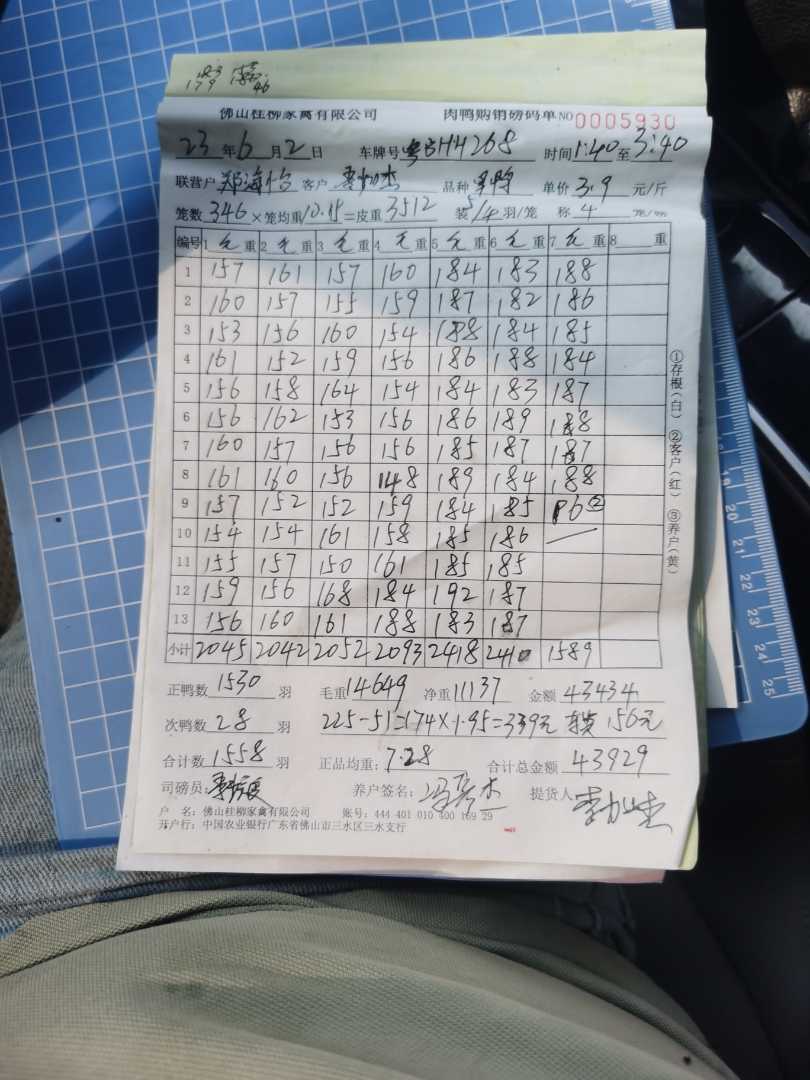 佛山桂柳家禽有限公司 肉鸭购销磅码单 NO 0005930
23 年 6 月 2 日 车牌号 H4268 时间 1:40 至 3:40
联营户 郑海怡 客户 品种 单价 3.9 元/斤
笼数 346 × 笼均重 10.15 = 皮重 3512 装 5/4 羽/笼 称 4
编号 1 毛 重 2 毛 重 3 毛 重 4 毛 重 5 毛 重 6 毛 重 7 毛 重 8 重
1 157 161 157 160 184 183 188
2 160 157 155 159 187 182 186
3 153 156 160 154 188 184 185
4 161 152 159 156 186 188 184
5 156 158 164 154 184 183 187
6 156 162 153 156 186 189 188
7 160 157 156 156 185 187 187
8 161 160 156 148 189 184 188
9 157 152 152 159 184 185 ②
10 154 154 161 158 185 186
11 155 157 150 161 185 185
12 159 156 168 184 192 187
13 156 160 161 188 183 187
小计 2045 2042 2052 2093 2418 2410 1589
①存根(白) ②客户(红) ③养户(黄)
正鸭数 1530 羽 毛重 14649 净重 11137 金额 43434
次鸭数 28 羽 225-51=174×1.95=339元 156元
合计数 1558 羽 正品均重: 7.28 合计总金额 43929
司磅员: 养户签名: 提货人
户 名: 佛山桂柳家禽有限公司 账号: 444 401 010 400 169 29
开户行: 中国农业银行广东省佛山市三水区三水支行
19
20
21
22
23
24
25